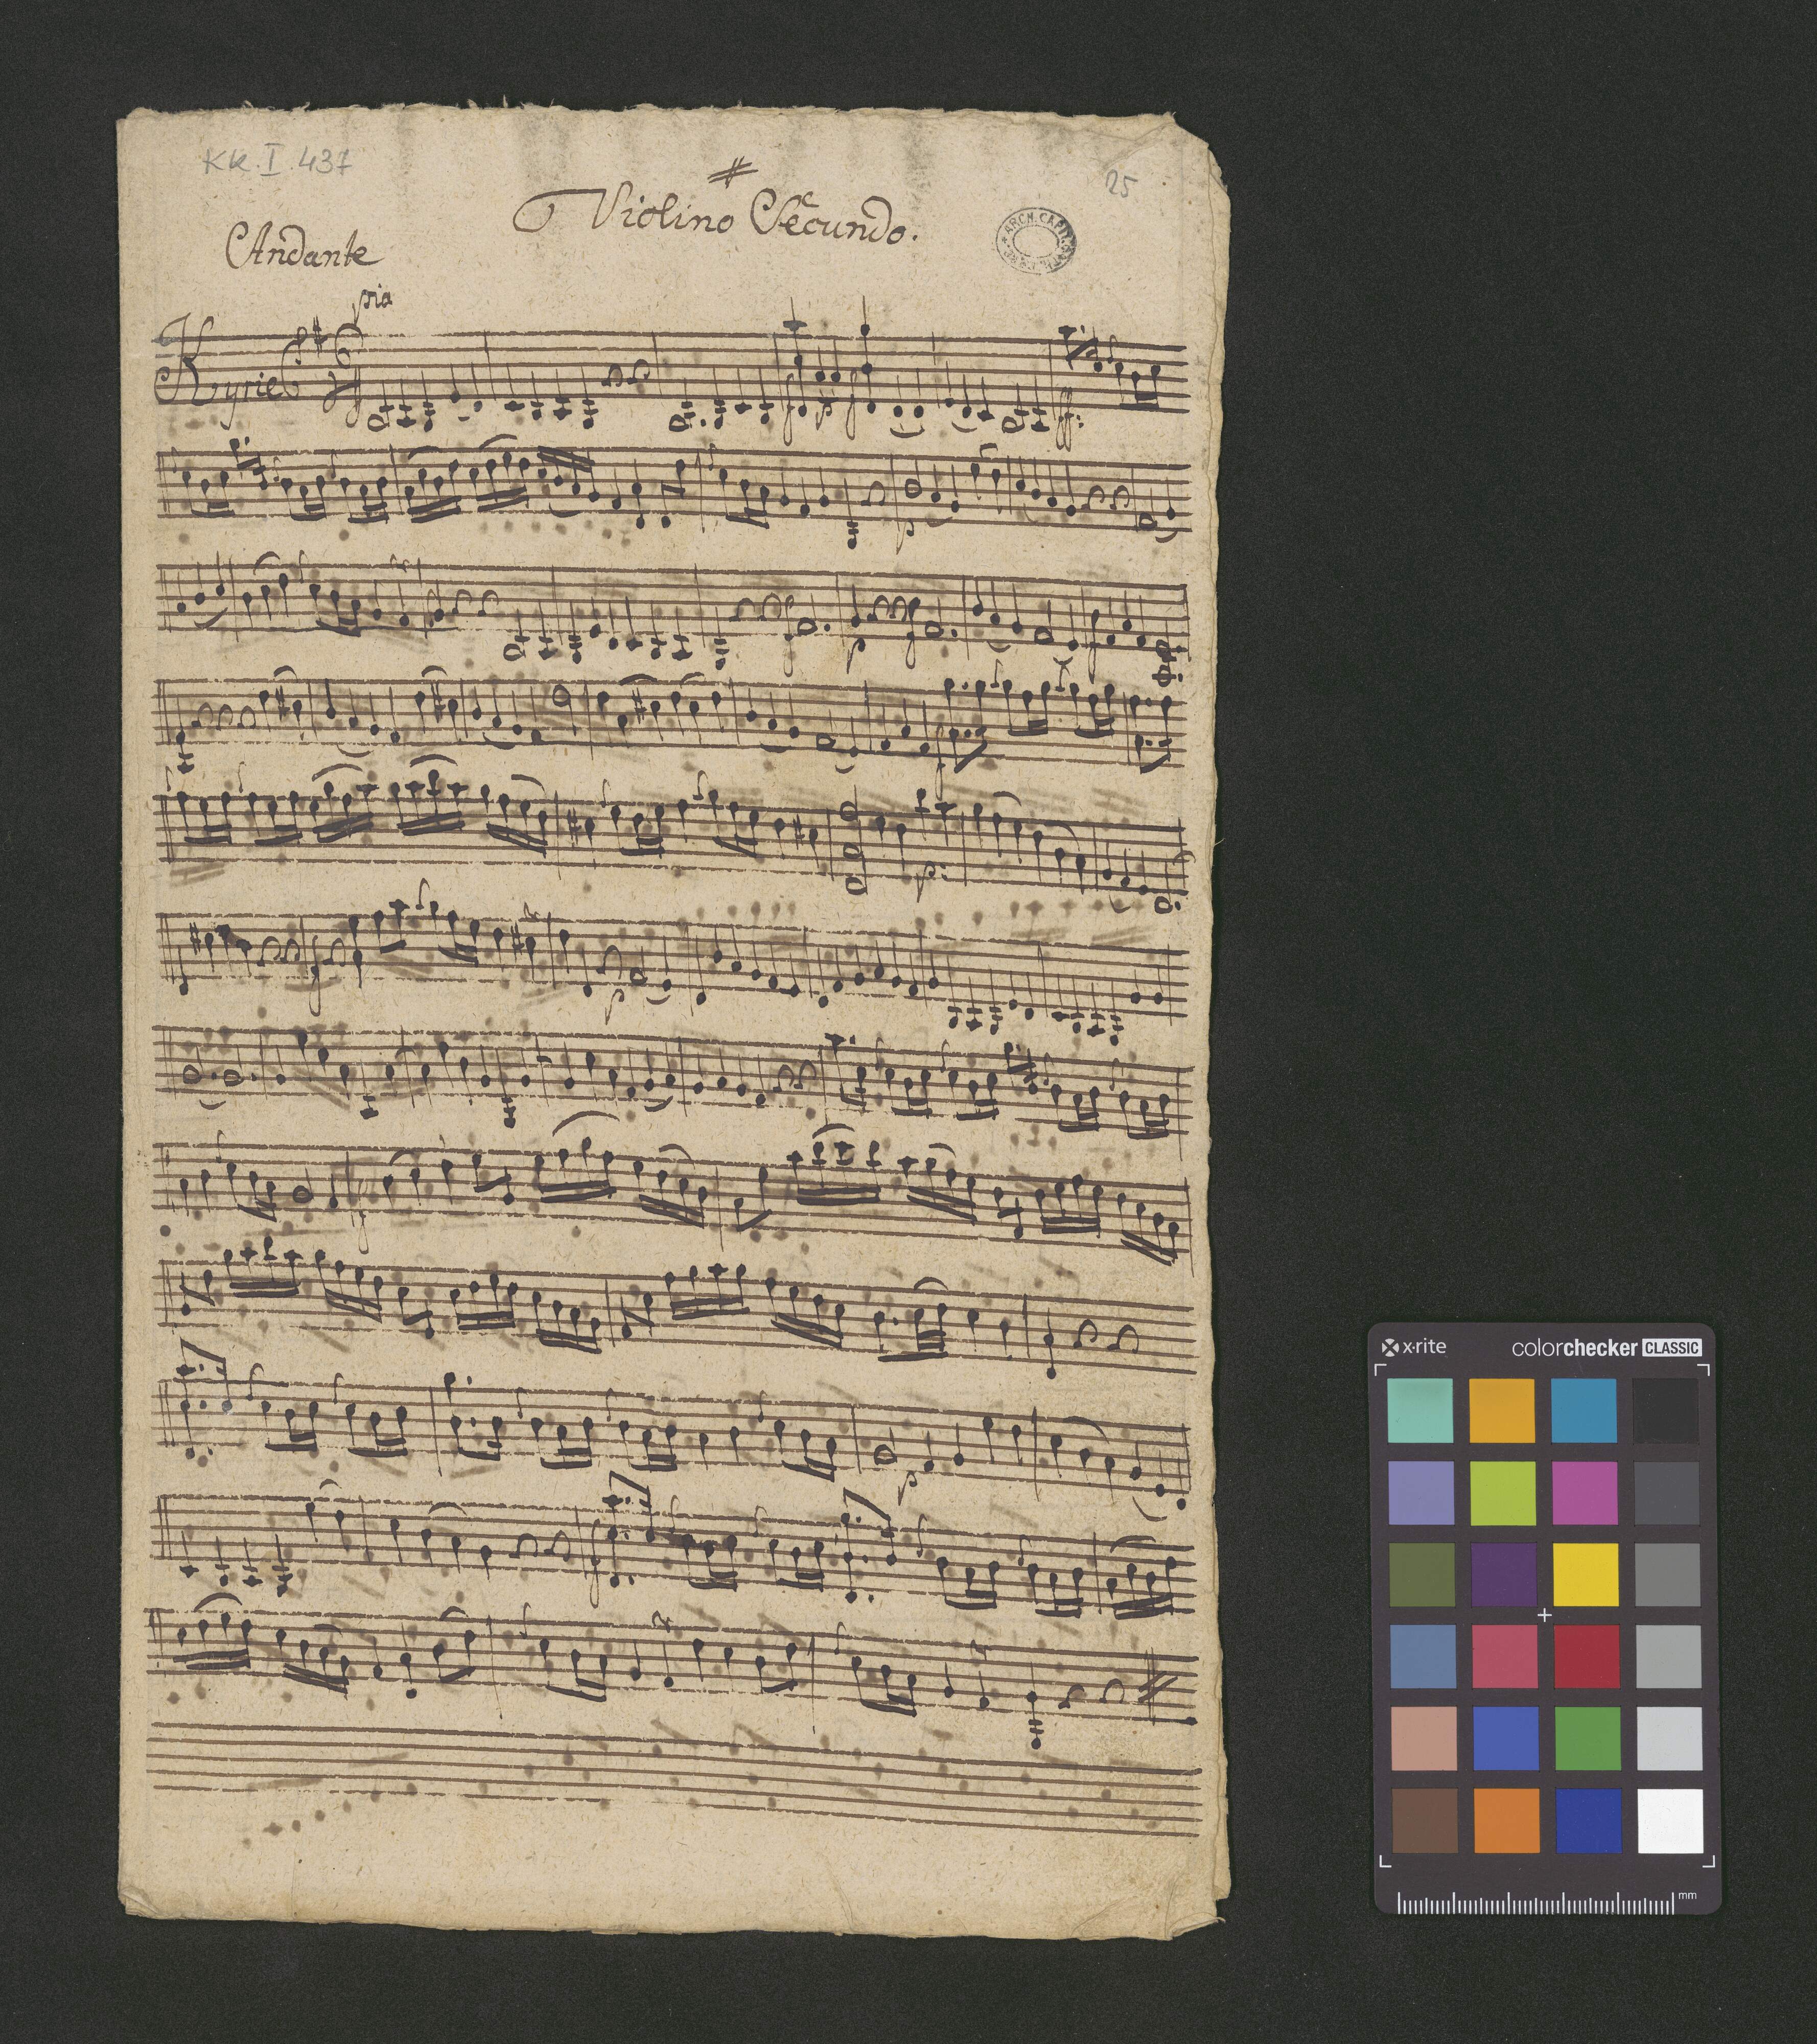 KK.I.437
25
Violino Secundo.
ARCH. CAPIT.
Andante
pia
Kyrie
ff:
p
f
p
p:
p
f
p
x-rite
colorchecker CLASSIC
mm